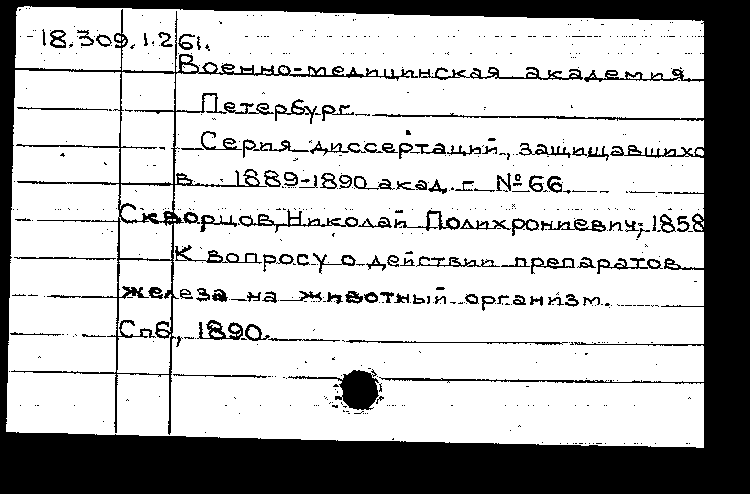 18.309.1.261.
Военно-медицинская академия.
Петербург.
Серия диссертаций, защищавшихс
в 1889-1890 акад. г. № 66.
Скворцов, Николай Полихрониевич, 1858
К вопросу о действии препаратов
железа на животный организм.
Спб, 1890.